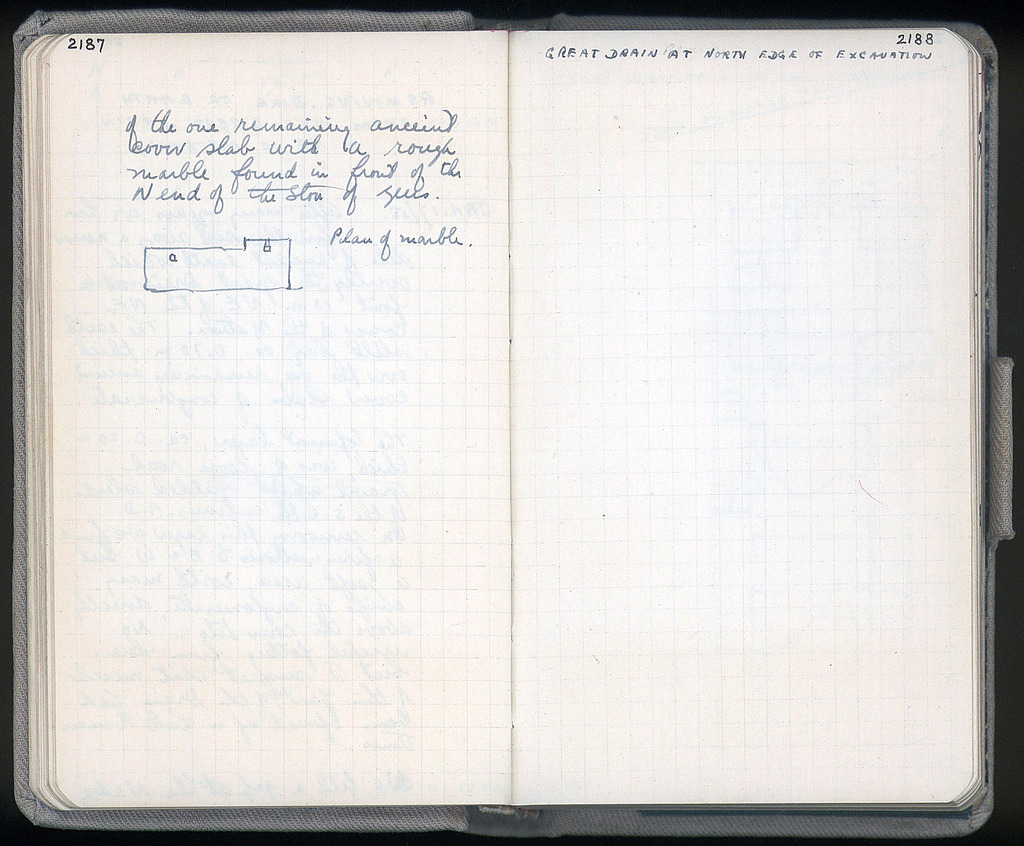 2187
of the one remaining anceint
cover slab with a rough
marble found in front of the
N end of the Stoa of Zeus.
Plan of marble.
a
b
2188
GREAT DRAIN AT NORTH EDGE OF EXCAVATION